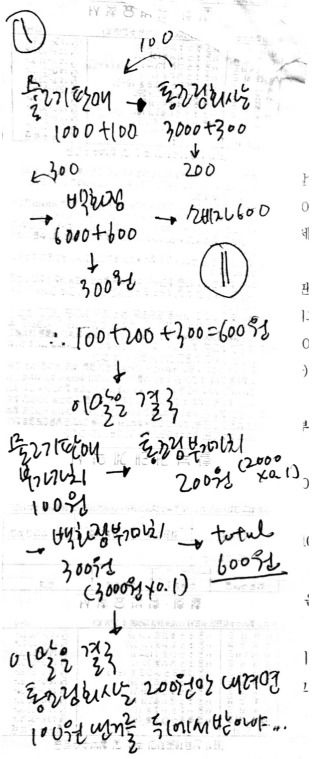 ①
100
물고기판매 → 통조림회사는
1000+100 3000+300
↓
300 200
→ 백화점 → 소비자 600
6000+600
↓
300원
∴ 100+200+300=600원
↓
이말은 결국
물고기판매 → 통조림부가가치
부가가치 200원 (2000×0.1)
100원
→ 백화점부가가치 → total
300원 600원
(3000원×0.1)
↓
이말은 결국
통조림회사는 200원만 내려면
100원 낸거를 국세에서 받아야...